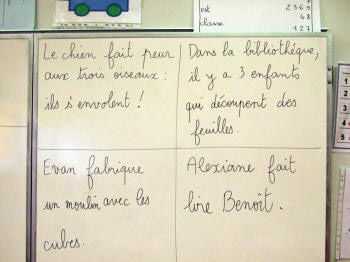 est 2369
classe 48
127
Le chien fait peur
aux trois oiseaux :
ils s'envolent !
Dans la bibliothèque,
il y a 3 enfants
qui découpent des
feuilles.
Evan fabrique
un moulin avec les
cubes.
Alexiane fait
lire Benoît.
1
2
3
4
5